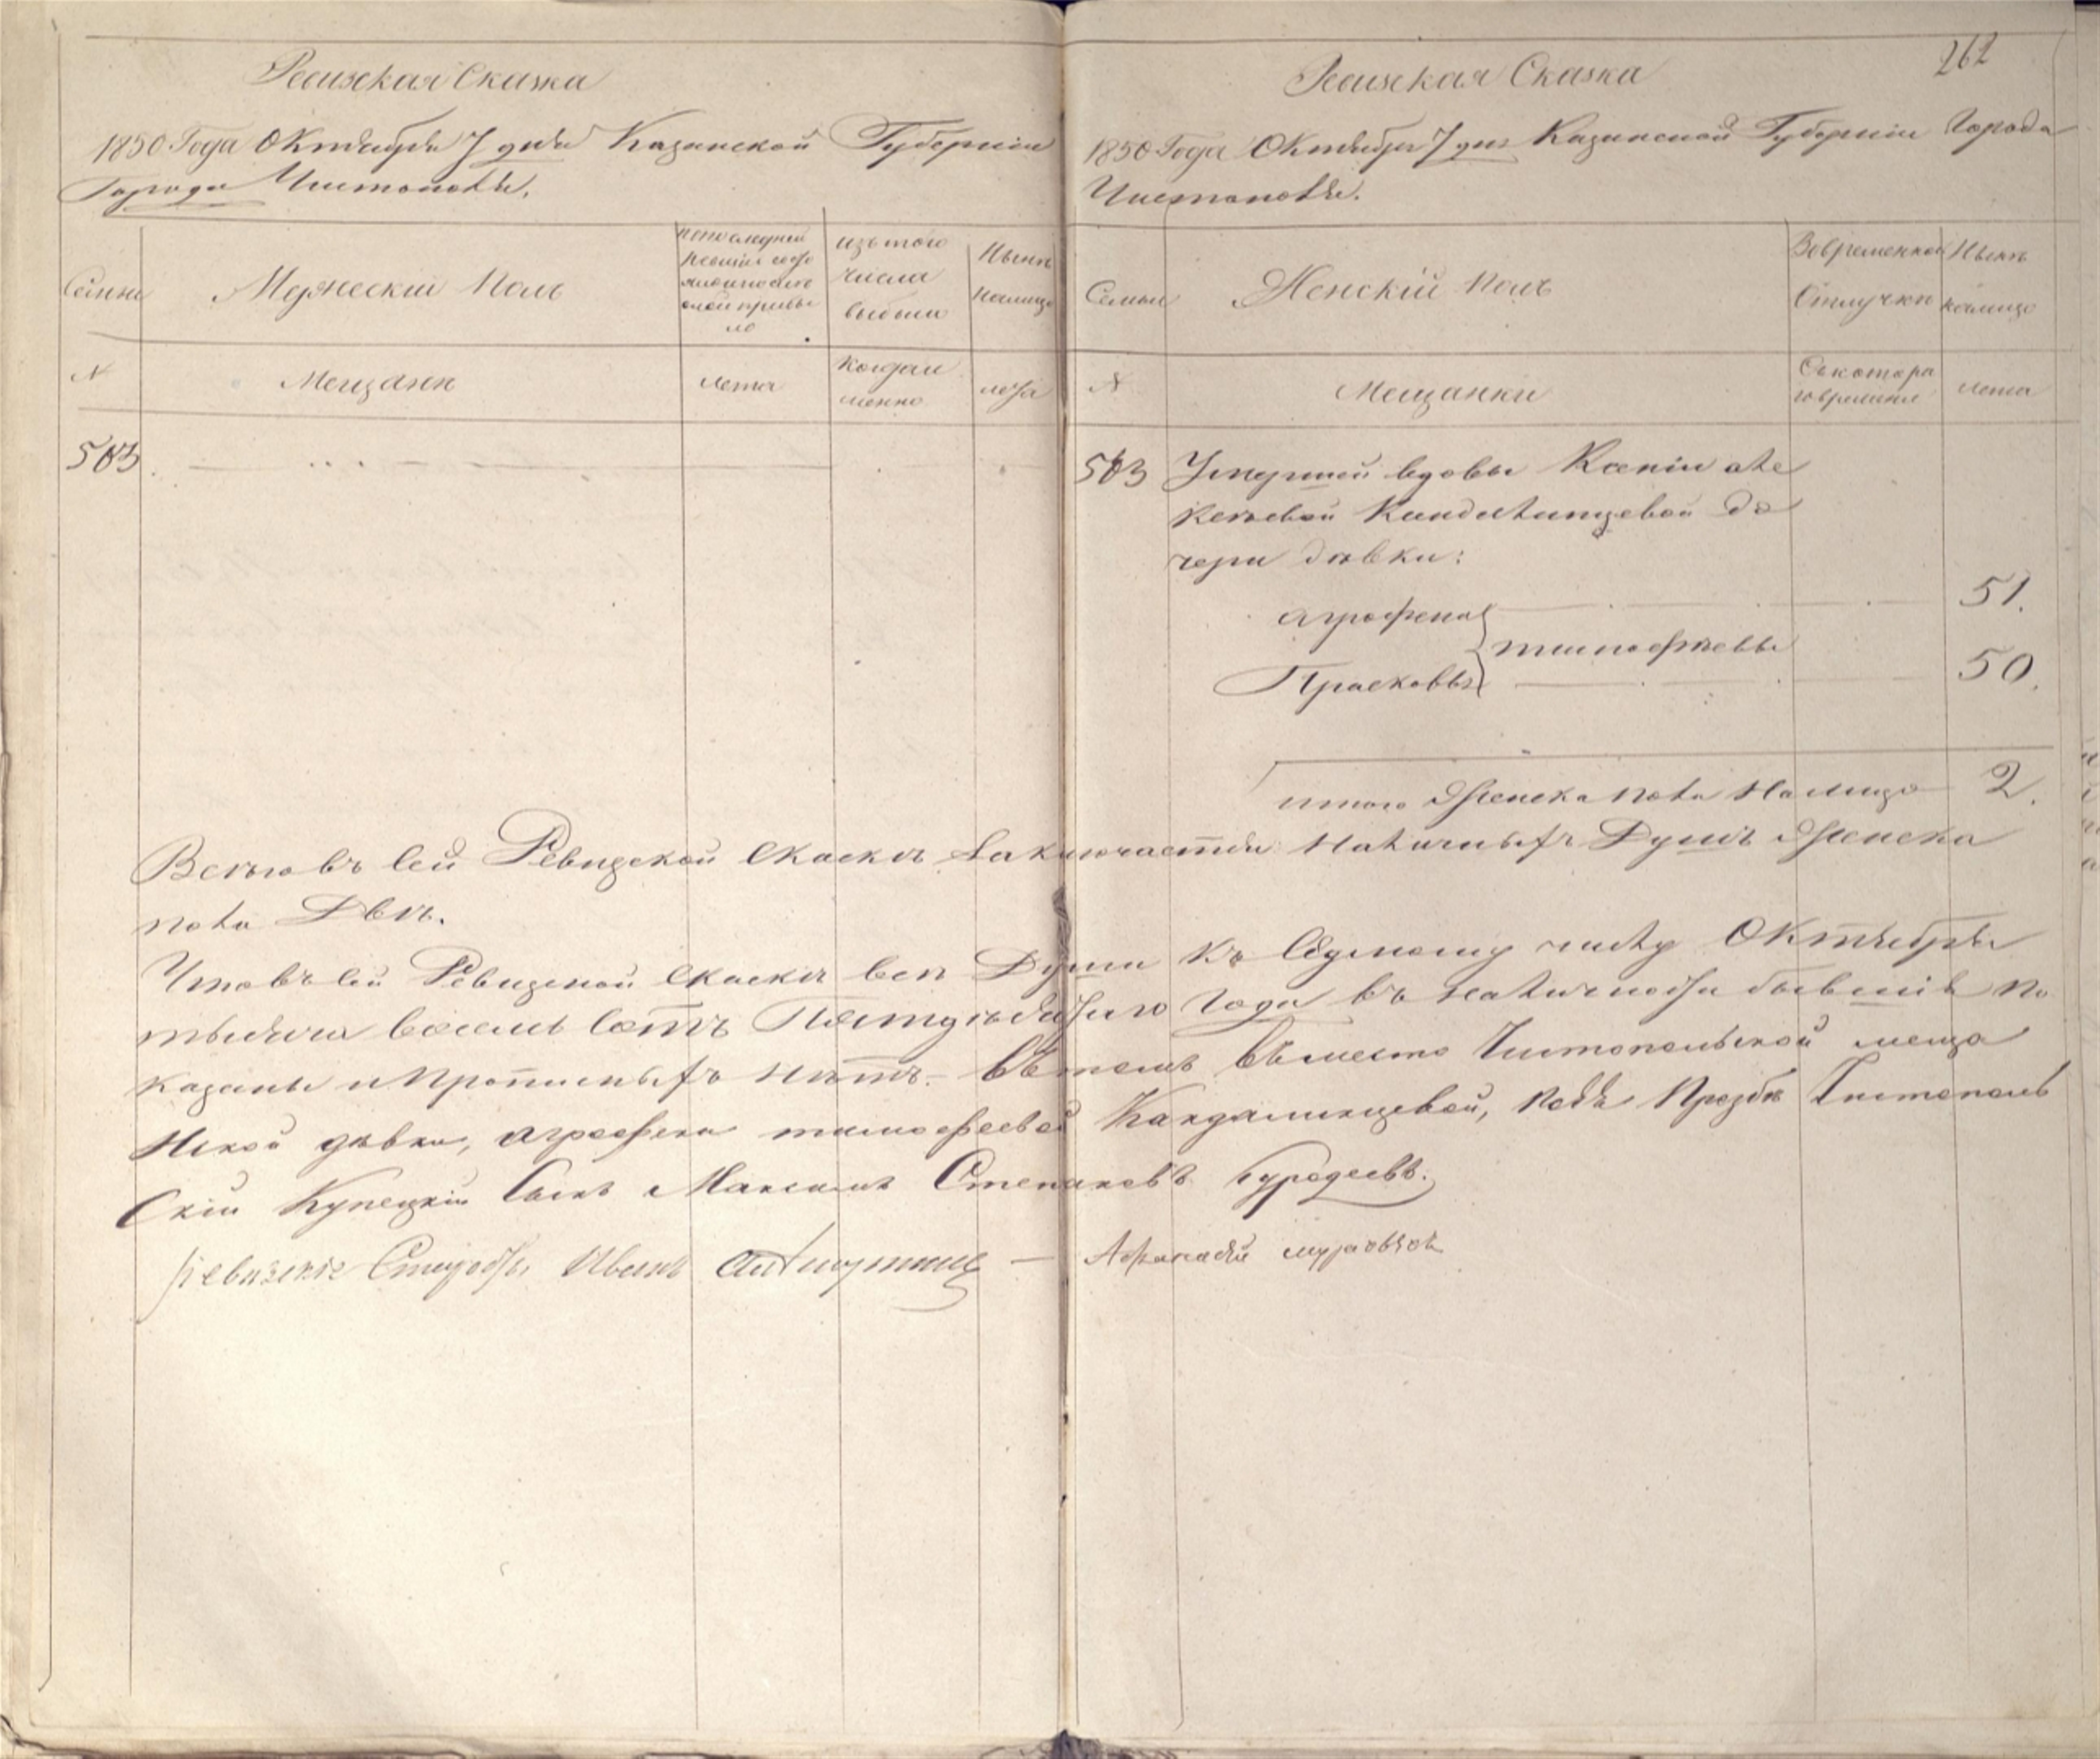 262
Ревизская Сказка
1850 Года Октября 7 дня Казанской Губерніи
Города Чистополя.
Семьи
Мужескій Полъ
по последней ревизіи состояло и после оной прибыло
изъ того числа выбыло
Ныне налицо
N
Мещане
лета
когда именно
лета
503
Ревизская Сказка
1850 Года Октября 7 дня Казанской Губерніи Города
Чистополя.
Семьи
Женскій Полъ
Во временной Отлучке
Ныне налицо
N
Мещанки
Съ котораго времени
лета
503 Умершей вдовы Ксеніи Але
ксеевой Кандалинцевой до
чери девки:
Агрофена 51.
тимофеевы
Прасковья 50.
итого Женска пола На лицо 2.
Всего въ сей Ревизской Скаске Заключается Наличныхъ Душъ Женска
пола Две.
Что въ сей Ревизской Скаске все Души къ Седмому числу Октября
тысяча восемь сотъ Пятьдесятаго Года въ наличности бывшіе по
казаны и прописныхъ нетъ. Въ томъ вместо Чистопольской меща
нской девки, Агрофены тимофеевой Кандалинцевой, по Ея Прозбе Чистополь
Скій Купецкій Сынъ Максимъ Степановъ
Ревизскіе Старосты Иванъ — Афанасій